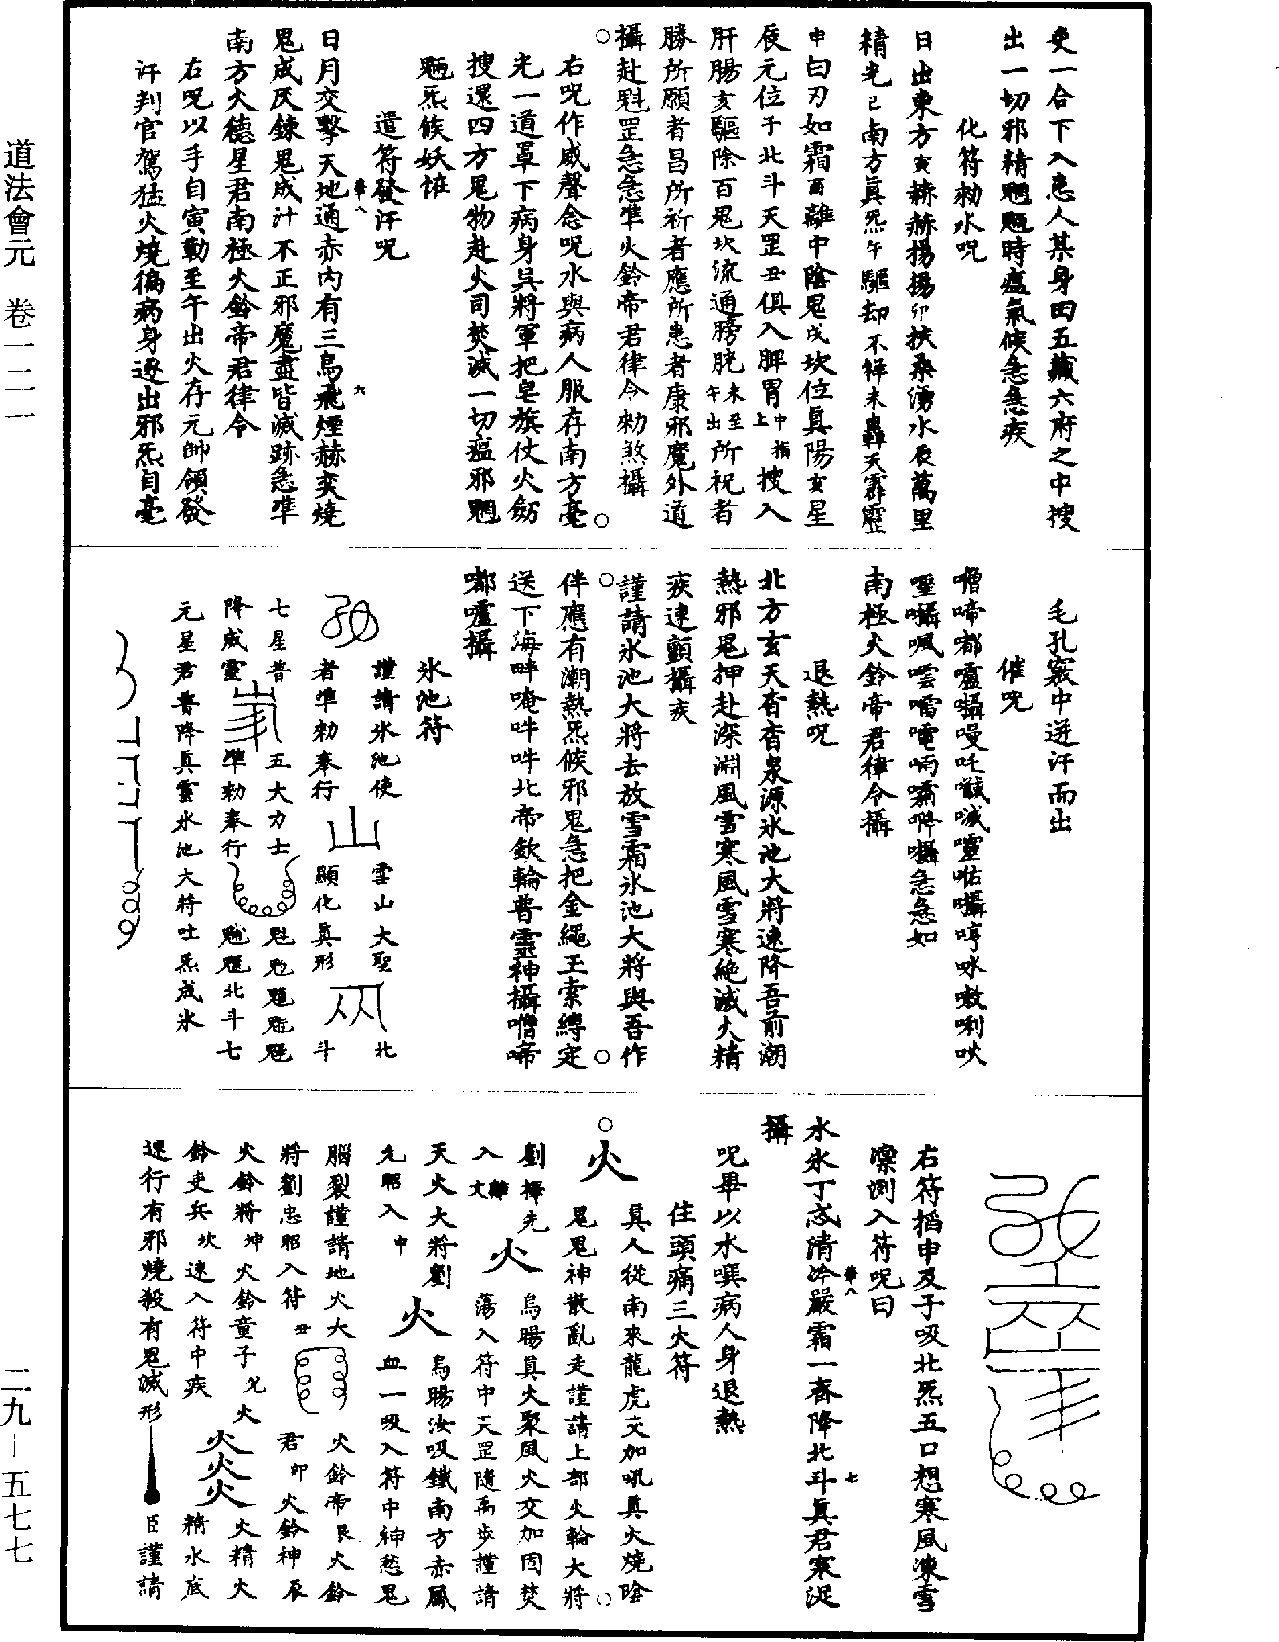 道法會元 卷一二一
二九—五七七
吏一合下入患人某身田五臟六府之中搜
出一切邪精魍魎時瘟氣候急急疾
化符勑水呪
日出東方亥赫赫揚揚卯扶桑湧水辰萬里
精光巳南方真炁午驅却不祥未轟天霹靂
申白刃如霜酉離中陰鬼戌坎位真陽亥星
辰元位子北斗天罡丑俱入脾胃中指上搜入
肝腸亥驅除百鬼坎流通膀胱未至午出所祝者
勝所願者昌所祈者應所患者康邪魔外道
攝赴魁罡急急準火鈴帝君律令勑煞攝
右呪作威聲念呪水與病人服存南方毫
光一道罩下病身吳將軍把皂旗仗火劒
搜還四方鬼物赴火司焚滅一切瘟邪魍
魎炁候妖怪
遣符發汗呪
日月交擊天地通赤內有三烏飛煙赫奕燒
鬼成灰鍊鬼成汁不正邪魔盡皆滅跡急準
南方火德星君南極火鈴帝君律令
右呪以手自寅勒至午出火存元帥領發
汗判官駕猛火燒徧病身逐出邪炁自毫
毛孔竅中迸汗而出
催呪
南極火鈴帝君律令攝
退熱呪
北方玄天杳杳泉源氷池大將速降吾前潮
熱邪鬼押赴深淵風雪寒風雪寒絶滅火精
疾速顫攝疾
謹請氷池大將去放雪霜氷池大將與吾作
伴應有潮熱炁候邪鬼急把金繩玉索縛定
送下海畔唵吽吽北帝欽輪普靈神攝噌啼
嘟嚧攝
氷池符
謹請氷池使
雪山大聖
北
者準勑奉行
顯化真形
斗
七星普
五大力士
降威靈
準勑奉行
北斗七
元星君普降真靈氷池大將吐炁成氷
右符掐申及子吸北炁五口想寒風凍雪
凜冽入符呪曰
水氷丁忒清冷嚴霜一齊降北斗真君寒泟
攝
呪畢以水噀病人身退熱
住頭痛三火符
真人從南來龍虎交加吼真火燒陰
火
鬼鬼神散亂走謹請上部火輪大將
劉擇先
烏暘真火聚風火交加固焚
入離文
火
蕩入符中天罡隨禹步謹請
天火大將劉
烏暘汝吸鐵南方赤鳳
先昭入中
火
血一吸入符中神愁鬼
腦裂謹請地火大
火鈴帝艮火鈴
將劉忠昭入符丑
君卯火鈴神辰
火鈴將坤火鈴童子兌火
火火火
火精火
鈴吏兵坎速入符中疾
精水底
遅行有邪燒殺有鬼滅形
臣謹請